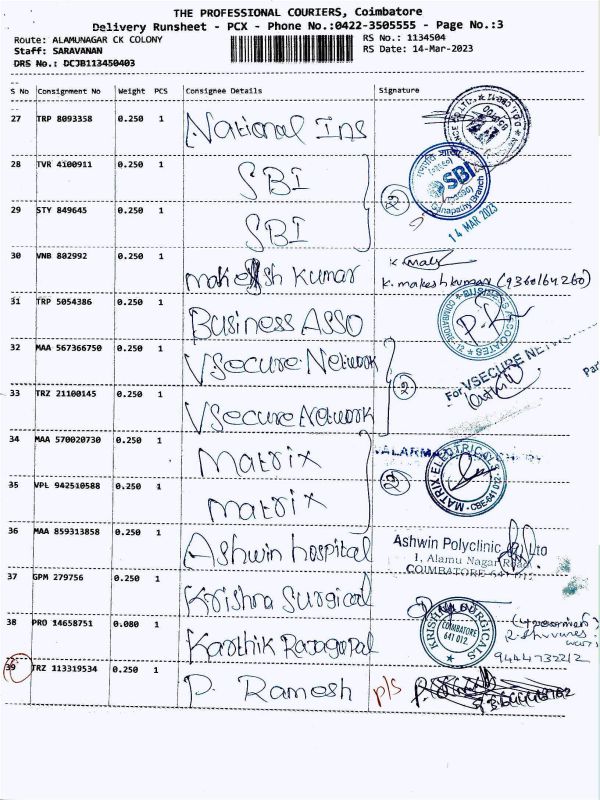 THE PROFESSIONAL COURIERS, Coimbatore
Delivery Runsheet - PCX - Phone No.:0422-3505555 - Page No.:3
Route: ALAMUNAGAR CK COLONY RS No.: 1134504
Staff: SARAVANAN RS Date: 14-Mar-2023
DRS No.: DCJB113450403
S No Consignment No Weight PCS Consignee Details Signature
27 TRP 8093358 0.250 1 National Ins
28 TVR 4100911 0.250 1 SBI
SBI
Ganapathy Branch
29 STY 849645 0.250 1 SBI
14 MAR 2023
30 VNB 802992 0.250 1 makesh kumar
K. makesh kumar (9360164260)
31 TRP 5054386 0.250 1 Business ASSO
BUSINESS ASSOCIATES
32 MAA 567366750 0.250 1 VSecure Network
For VSECURE
33 TRZ 21100145 0.250 1 VSecure Network
34 MAA 570020730 0.250 1 Matrix
MATRIX ELECTRICALS CBE-641 012
35 VPL 942510588 0.250 1 Matrix
36 MAA 859313858 0.250 1 Ashwin hospital
Ashwin Polyclinic Ltd
1, Alamu Nagar Road
COIMBATORE
37 GPM 279756 0.250 1 Krishna Surgical
KRISHNA SURGICALS COIMBATORE 641 012
38 PRO 14658751 0.080 1 Karthik Rajagopal
9444732212
39 TRZ 113319534 0.250 1 P. Ramesh p/s